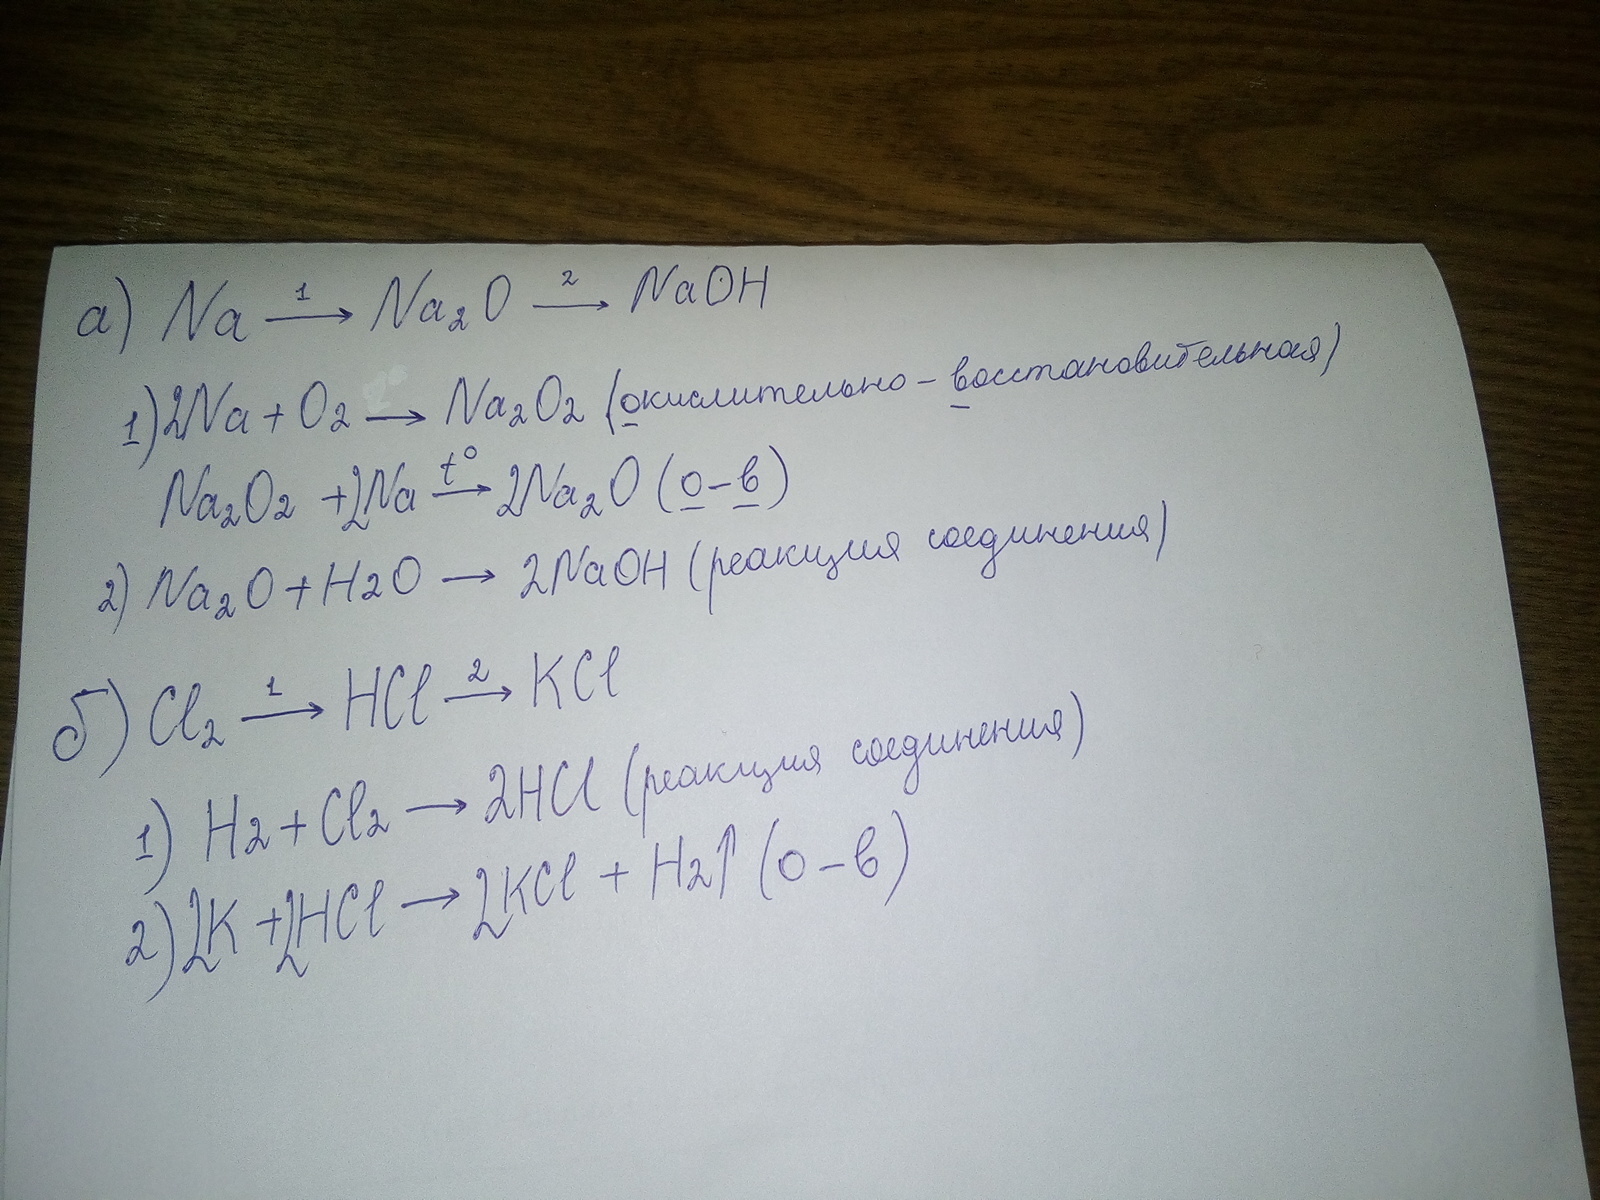 а) Na →¹ Na₂O →² NaOH
1) 2Na + O₂ → Na₂O₂ (окислительно - восстановительная)
Na₂O₂ + 2Na →t° 2Na₂O (о-в)
2) Na₂O + H₂O → 2NaOH (реакция соединения)
б) Cl₂ →¹ HCl →² KCl
1) H₂ + Cl₂ → 2HCl (реакция соединения)
2) 2K + 2HCl → 2KCl + H₂↑ (о-в)